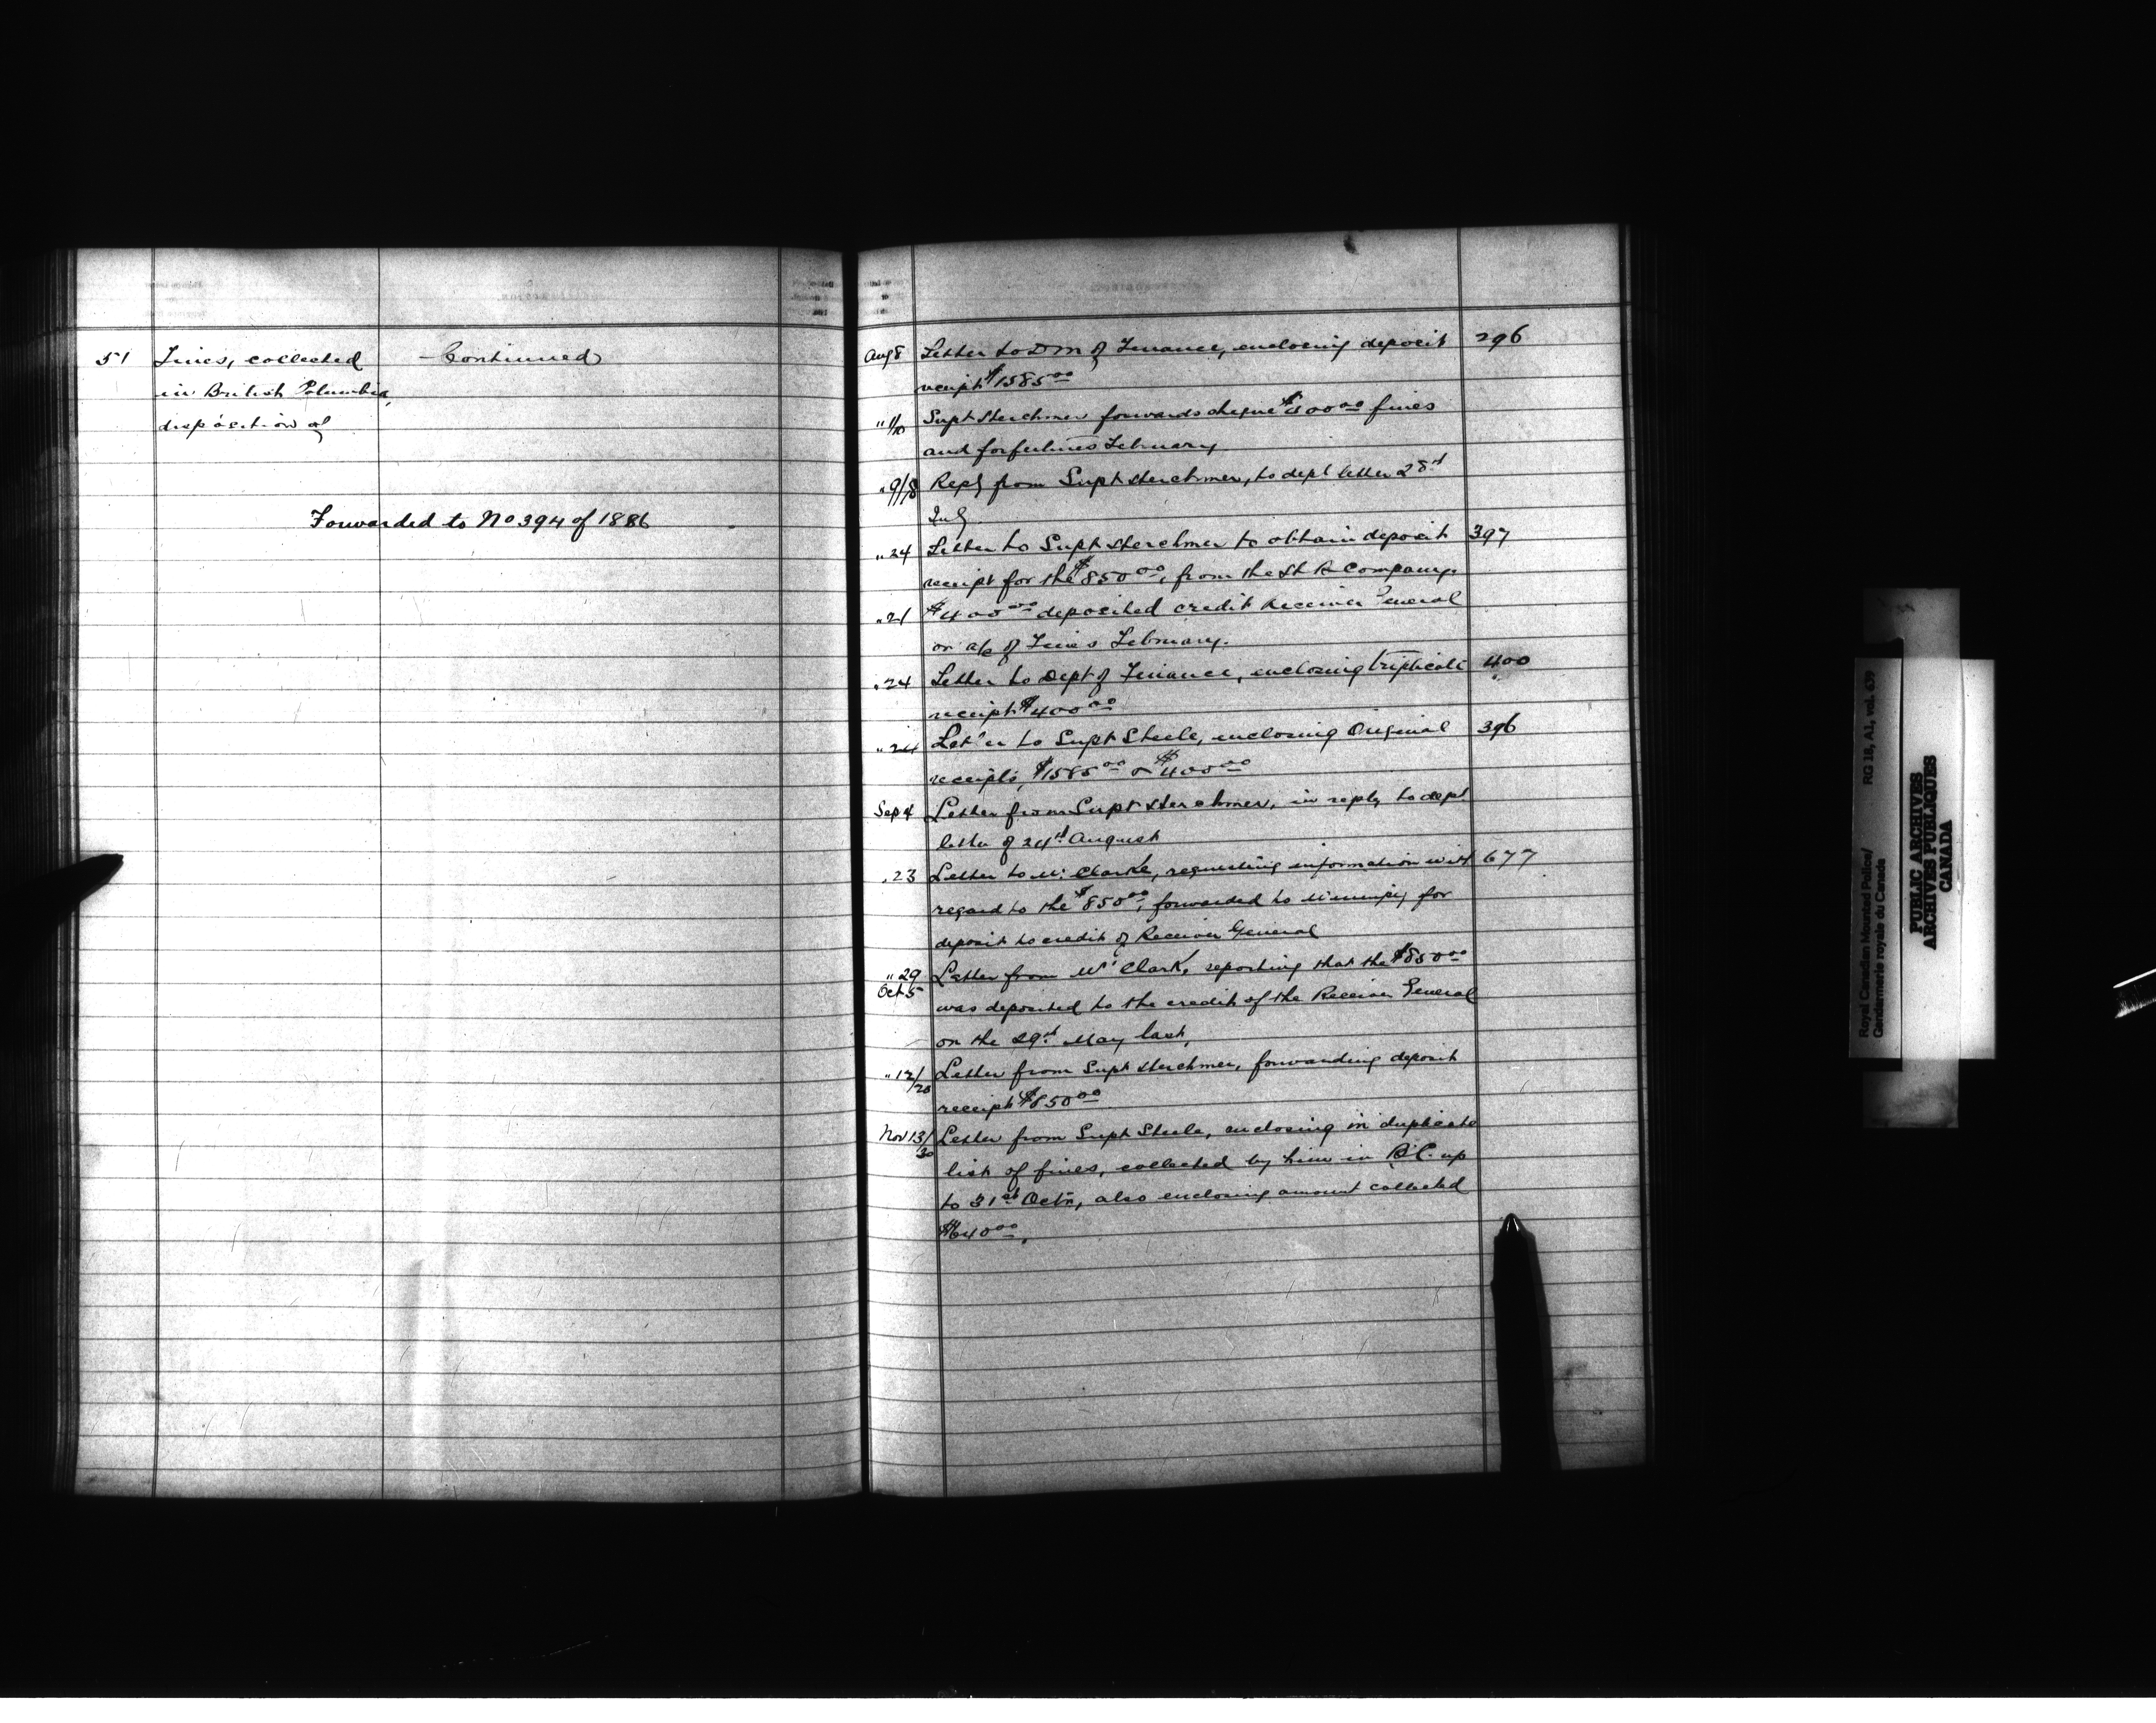 51 Fines, collected Continued
in British Columbia,
disposition of
Forwarded to No 394 of 1886
Aug 8 Letter to D M of Finance, enclosing deposit 296
receipt $1585 00
" 1/10 Supt Herchmer forwards cheque $400 00 fines
and forfeitures February
" 9/18 Reply from Supt Herchmer, to dept letter 28th
July
" 24 Letter to Supt Herchmer to obtain deposit 397
receipt for the $850 00, from the H B Company.
" 21 $400 00 deposited credit Receiver General
on a/c of Fines February.
" 24 Letter to Dept of Finance, enclosing triplicate 400
receipt $400 00
" 24 Letter to Supt Steele, enclosing Original 396
receipts, $1585 00 & $400 00
Sep 4 Letter from Supt Herchmer, in reply to dept
letter of 24th August
" 23 Letter to Mr Clarke, requesting information with 677
regard to the $850 00, forwarded to Winnipeg for
deposit to credit of Receiver General
" 29 Letter from Mr Clark, reporting that the $850 00
Oct 5 was deposited to the credit of the Receiver General
on the 29th May last,
" 12/20 Letter from Supt Herchmer, forwarding deposit
receipt $850 00
Nov 13/30 Letter from Supt Steele, enclosing in duplicate
list of fines, collected by him in B.C. up
to 31st Octr, also enclosing amount collected
$640 00,
Royal Canadian Mounted Police/ RG 18, A1, vol. 639
Gendarmerie royale du Canada
PUBLIC ARCHIVES
ARCHIVES PUBLIQUES
CANADA